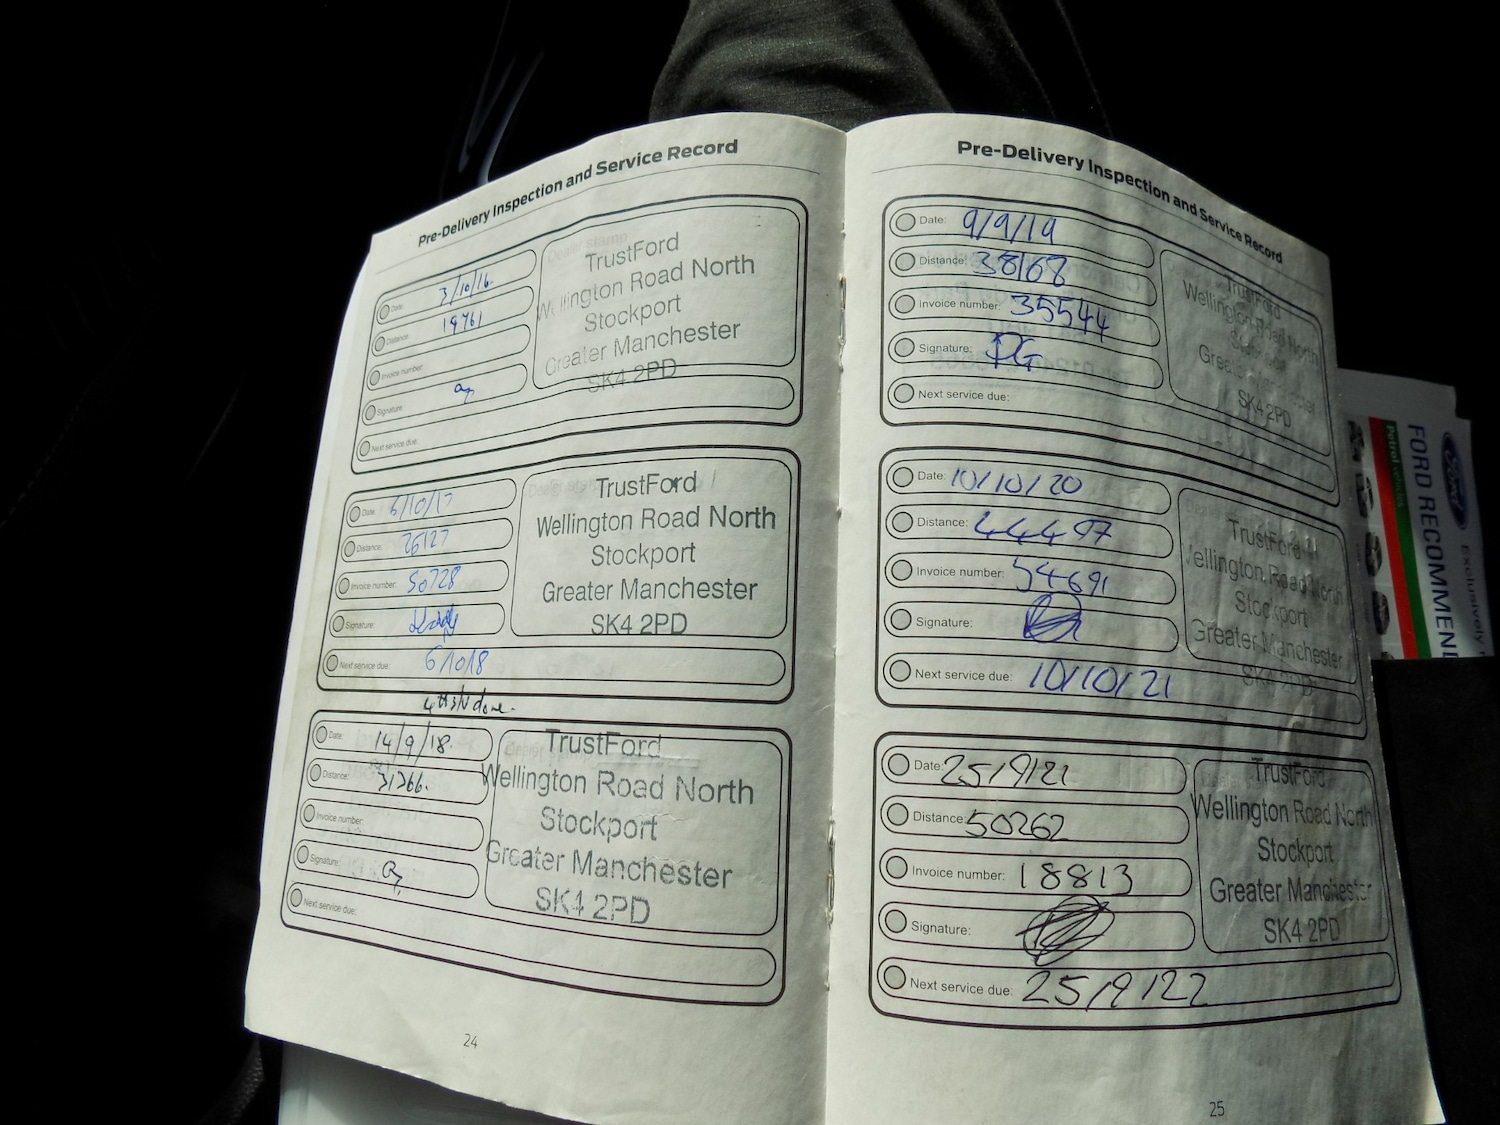 Pre-Delivery Inspection and Service Record
Date: 3/10/16.
Distance: 19761
Invoice number:
Signature:
Next service due:
Dealer stamp
TrustFord
Wellington Road North
Stockport
Greater Manchester
SK4 2PD
Date: 6/10/17
Distance: 26127
Invoice number: 50728
Signature:
Next service due: 6/10/18
TrustFord
Wellington Road North
Stockport
Greater Manchester
SK4 2PD
done.
Date: 14/9/18.
Distance: 31266.
Invoice number:
Signature:
Next service due:
TrustFord
Wellington Road North
Stockport
Greater Manchester
SK4 2PD
24
Pre-Delivery Inspection and Service Record
Date: 9/9/19
Distance: 38168
Invoice number: 35544
Signature: PG
Next service due:
TrustFord
Wellington Road North
Stockport
Greater Manchester
SK4 2PD
Date: 10/10/20
Distance: 44497
Invoice number: 54691
Signature:
Next service due: 10/10/21
TrustFord
Wellington Road North
Stockport
Greater Manchester
SK4 2PD
Date: 25/9/21
Distance: 50262
Invoice number: 18813
Signature:
Next service due: 25/9/22
TrustFord
Wellington Road North
Stockport
Greater Manchester
SK4 2PD
25
Ford
Exclusively
FORD RECOMMEN
Petrol vehicles